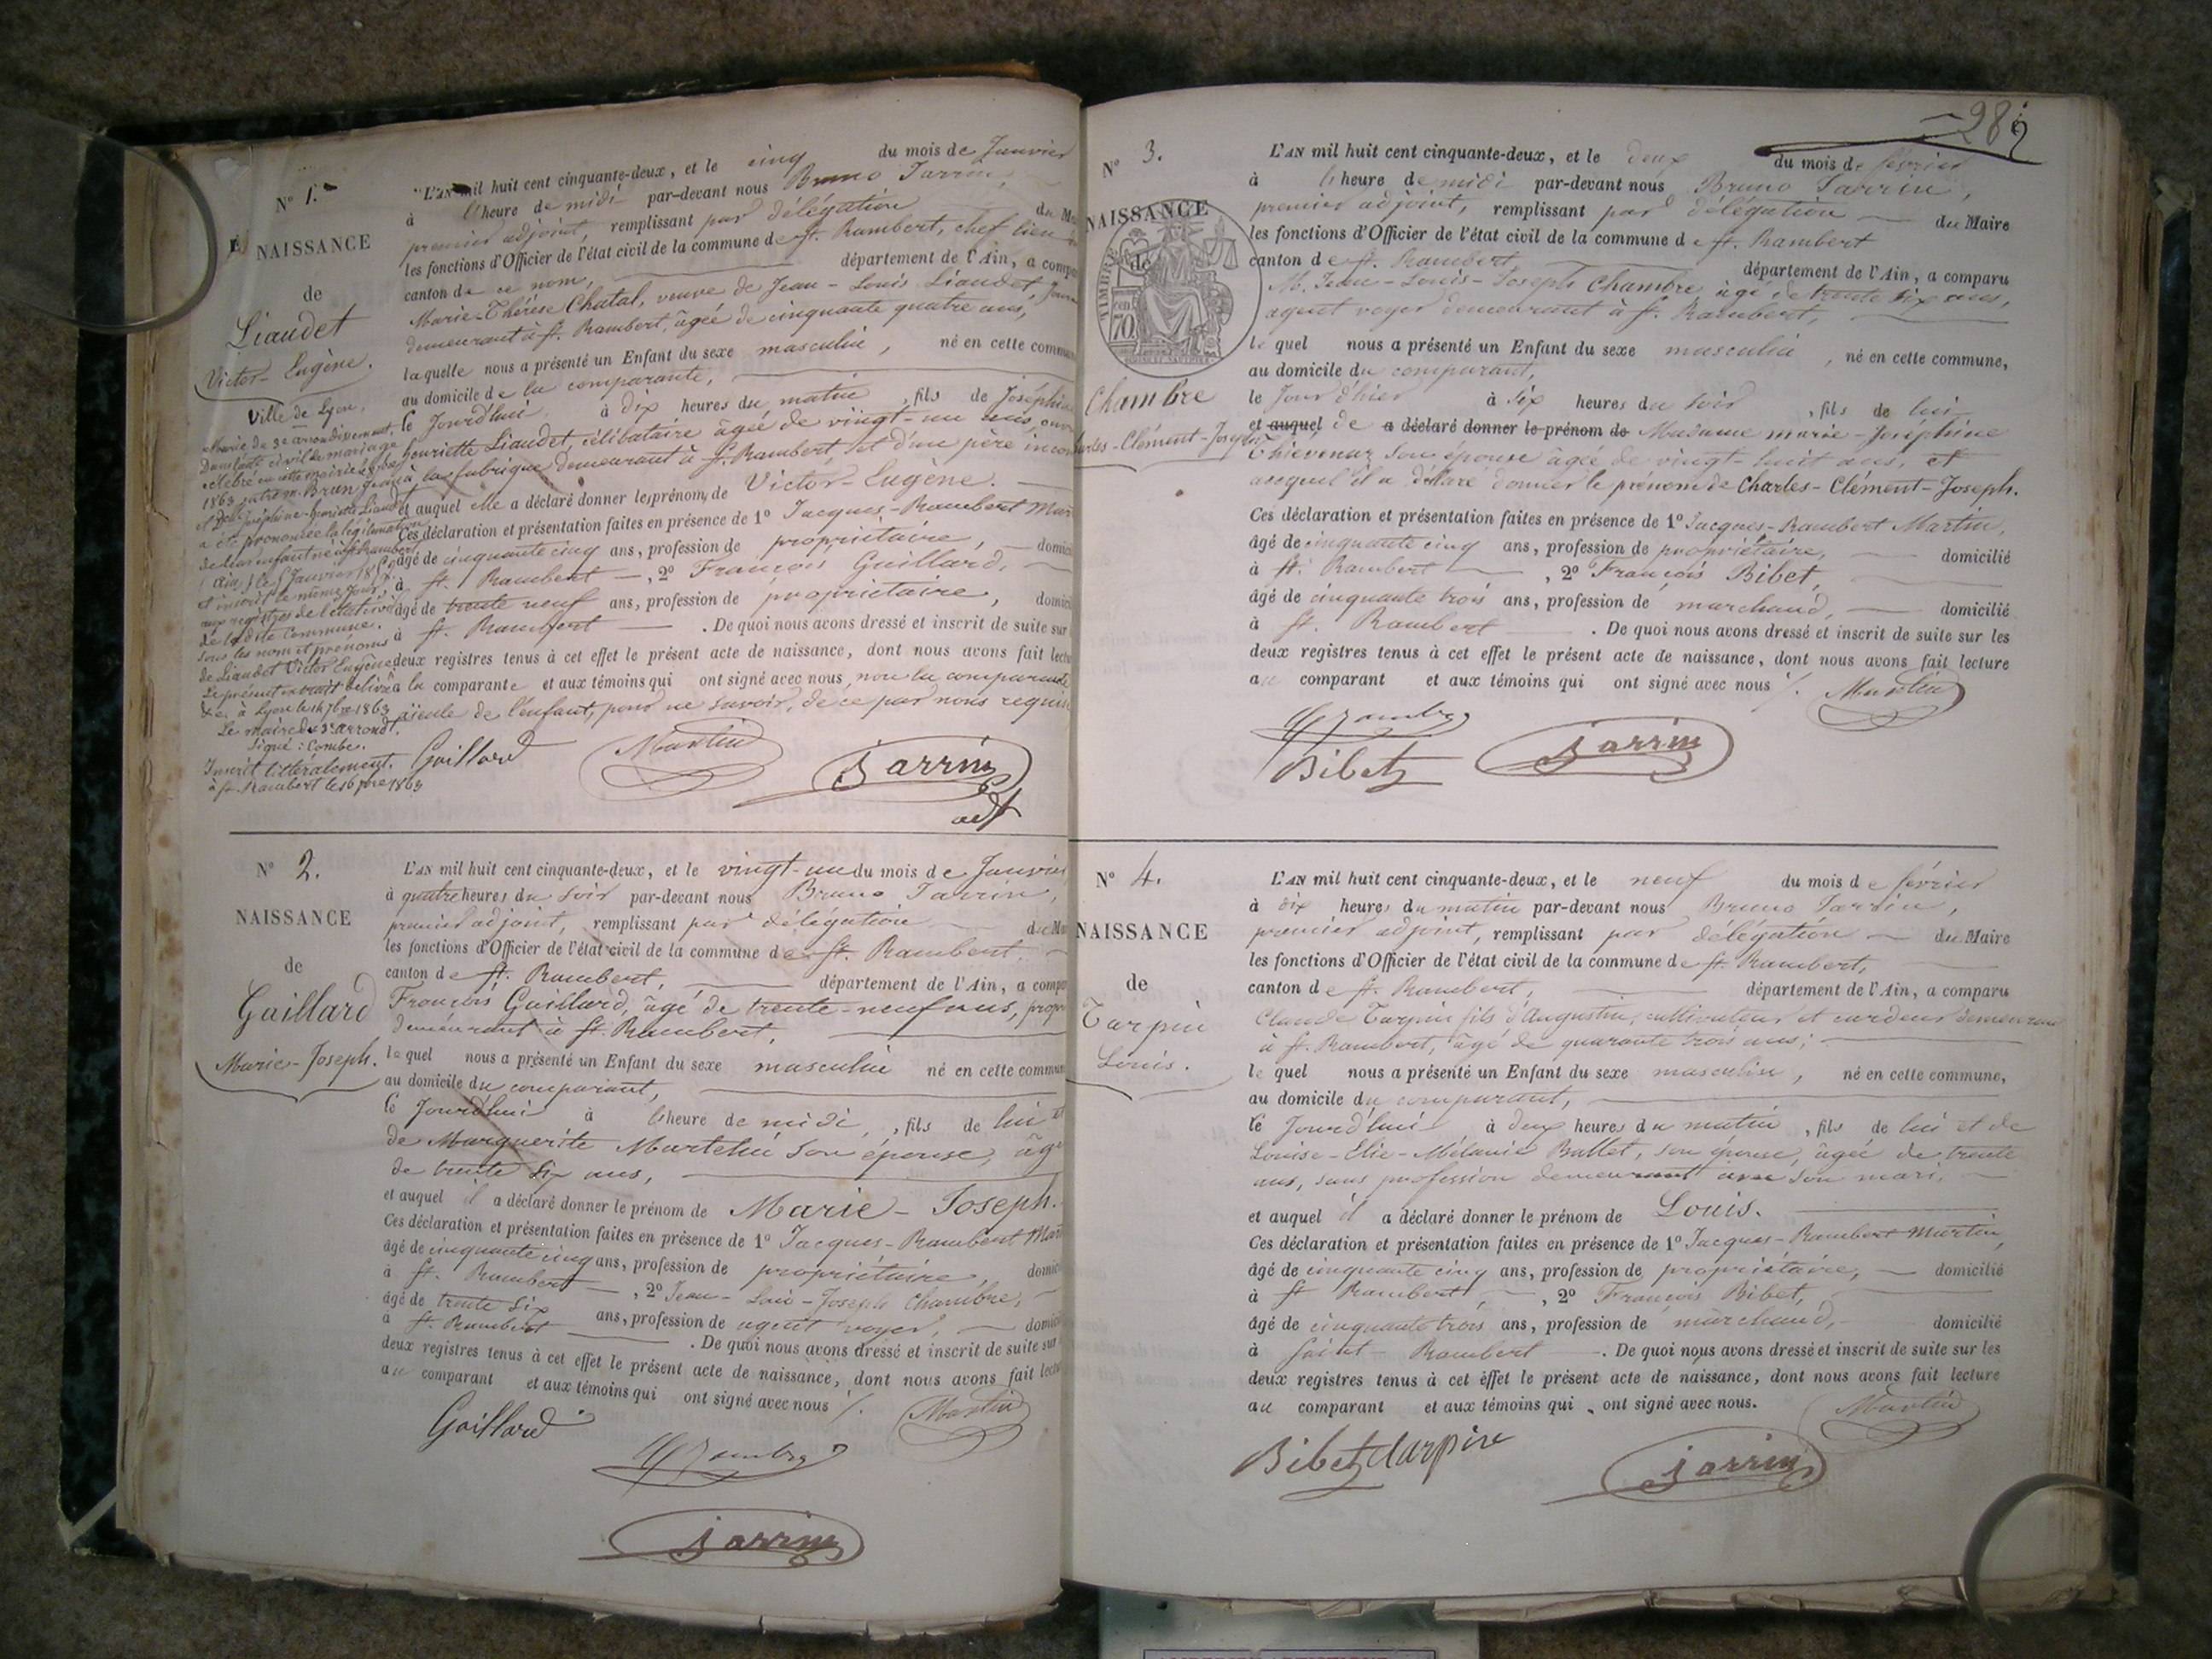 Nº 1.
NAISSANCE
de
Liaudet
Victor-Eugène.
Ville de Lyon.
Mairie de 3e arrondissement.
Dans l'acte civil de mariage
célébré en cette mairie le
1863 entre M. Brun
et Delle Joséphine-henriette Liaudet
a été prononcée la légitimation
de leur enfant né à St. Rambert
(Ain) le 5 Janvier 1852
et inscrit le même jour
aux registres de l'état civil
de ladite Commune.
sous les nom et prénoms
de Liaudet Victor Eugène
Le présent extrait délivré
à Lyon le 14 7bre 1863
Le maire du 3e arrondt.
Signé : Combe.
Inscrit littéralement.
à St. Rambert le 16 1863
L'AN mil huit cent cinquante-deux, et le cinq du mois de Janvier
à l'heure de midi par-devant nous Bruno Jarrin,
premier adjoint, remplissant par délégation du Ma
les fonctions d'Officier de l'état civil de la commune de St. Rambert, chef lieu
canton de ce nom, département de l'Ain, a compa
Marie-Thérèse Chatal, veuve de Jean-Louis Liaudet
demeurant à St. Rambert, âgée de cinquante quatre ans,
laquelle nous a présenté un Enfant du sexe masculin, né en cette commun
au domicile de la comparante,
le Jourd'hui à dix heures du matin, fils de Joséphine
henriette Liaudet, célibataire âgée de vingt-un ans,
à la fabrique demeurant à St. Rambert, et d'un père incon
et auquel elle a déclaré donner les prénoms de Victor-Eugène.
Ces déclaration et présentation faites en présence de 1º Jacques-Rambert Mar
âgé de cinquante cinq ans, profession de propriétaire, domici
à St. Rambert, 2º François Guillard,
âgé de trente neuf ans, profession de propriétaire, domici
à St. Rambert. De quoi nous avons dressé et inscrit de suite sur
deux registres tenus à cet effet le présent acte de naissance, dont nous avons fait lectu
à la comparante et aux témoins qui ont signé avec nous, non la comparante
aïeule de l'enfant, pour ne savoir, de ce par nous requise
Gaillard Martin Jarrin
adt
Nº 2.
NAISSANCE
de
Gaillard
Marie-Joseph.
L'AN mil huit cent cinquante-deux, et le vingt-un du mois de Janvier
à quatre heures du soir par-devant nous Bruno Jarrin,
premier adjoint, remplissant par délégation du Ma
les fonctions d'Officier de l'état civil de la commune de St. Rambert,
canton de St. Rambert, département de l'Ain, a compa
François Gaillard, âgé de trente-neuf ans, propr
demeurant à St Rambert,
lequel nous a présenté un Enfant du sexe masculin né en cette commun
au domicile du comparant,
le Jourd'hui à l'heure de midi, fils de lui et
de Marguerite Martelin son épouse, âgé
de trente six ans,
et auquel il a déclaré donner le prénom de Marie-Joseph.
Ces déclaration et présentation faites en présence de 1º Jacques-Rambert Mart
âgé de cinquante cinq ans, profession de propriétaire, domici
à St. Rambert, 2º Jean-Louis-Joseph Chambre,
âgé de trente six ans, profession de agent voyer, domici
à St. Rambert. De quoi nous avons dressé et inscrit de suite sur
deux registres tenus à cet effet le présent acte de naissance, dont nous avons fait lectu
au comparant et aux témoins qui ont signé avec nous /.
Gaillard Martin
Chambre
Jarrin
289
Nº 3.
NAISSANCE
de
TIMBRE
70
Chambre
Charles-Clément-Joseph
L'AN mil huit cent cinquante-deux, et le deux du mois de février
à l'heure de midi par-devant nous Bruno Jarrin,
premier adjoint, remplissant par délégation du Maire
les fonctions d'Officier de l'état civil de la commune de St. Rambert
canton de St. Rambert département de l'Ain, a comparu
M. Jean-Louis-Joseph Chambre âgé de trente six ans,
agent voyer demeurant à St. Rambert,
lequel nous a présenté un Enfant du sexe masculin, né en cette commune,
au domicile du comparant,
le Jour d'hier à six heures du soir, fils de lui
et auquel de a déclaré donner le prénom de Madame marie-Joséphine
Thievenaz son épouse âgée de vingt-huit ans, et
auquel il a déclaré donner le prénom de Charles-Clément-Joseph.
Ces déclaration et présentation faites en présence de 1º Jacques-Rambert Martin,
âgé de cinquante cinq ans, profession de propriétaire, domicilié
à St. Rambert, 2º François Bibet,
âgé de cinquante trois ans, profession de marchand, domicilié
à St. Rambert. De quoi nous avons dressé et inscrit de suite sur les
deux registres tenus à cet effet le présent acte de naissance, dont nous avons fait lecture
au comparant et aux témoins qui ont signé avec nous /. Martin
Chambre
Bibet Jarrin
Nº 4.
NAISSANCE
de
Tarpin
Louis.
L'AN mil huit cent cinquante-deux, et le neuf du mois de février
à dix heures du matin par-devant nous Bruno Jarrin,
premier adjoint, remplissant par délégation du Maire
les fonctions d'Officier de l'état civil de la commune de St. Rambert,
canton de St. Rambert, département de l'Ain, a comparu
Claude Tarpin fils d'Augustin, cultivateur et cardeur demeurant
à St. Rambert, âgé de quarante trois ans;
lequel nous a présenté un Enfant du sexe masculin, né en cette commune,
au domicile du comparant,
le Jourd'hui à deux heures du matin, fils de lui et de
Louise-Elie-Mélanie Ballet, son épouse, âgée de trente
ans, sans profession demeurant avec son mari.
et auquel il a déclaré donner le prénom de Louis.
Ces déclaration et présentation faites en présence de 1º Jacques-Rambert Martin,
âgé de cinquante cinq ans, profession de propriétaire, domicilié
à St Rambert, 2º François Bibet,
âgé de cinquante trois ans, profession de marchand, domicilié
à Saint-Rambert. De quoi nous avons dressé et inscrit de suite sur les
deux registres tenus à cet effet le présent acte de naissance, dont nous avons fait lecture
au comparant et aux témoins qui ont signé avec nous.
Martin
Bibet tarpin Jarrin